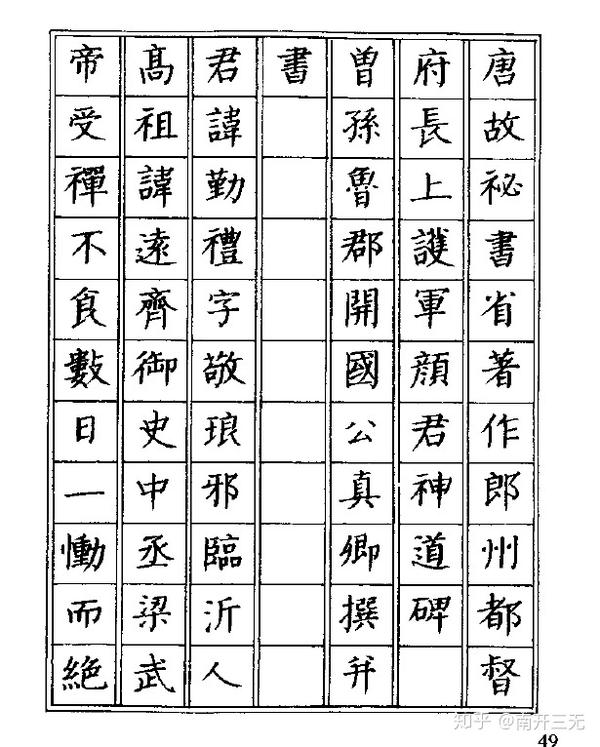 唐故祕書省著作郎州都督
府長上護軍顏君神道碑
曾孫魯郡開國公真卿撰并
書
君諱勤禮字敬琅邪臨沂人
高祖諱遠齊御史中丞梁武
帝受禪不食數日一慟而絕
49
知乎 @南开三无